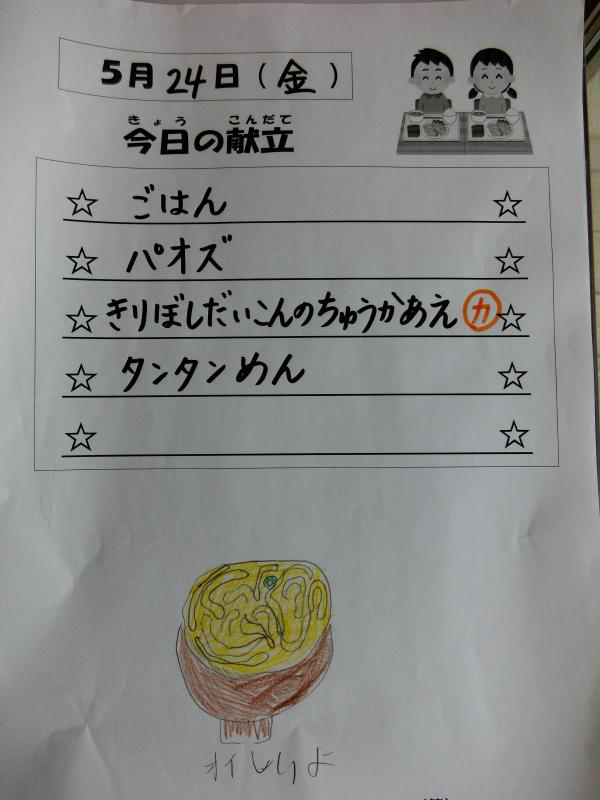 5月24日(金)
きょう こんだて
今日の献立
☆ ごはん ☆
☆ パオズ ☆
☆ きりぼしだいこんのちゅうかあえ カ ☆
☆ タンタンめん ☆
☆ ☆
オイしりよ